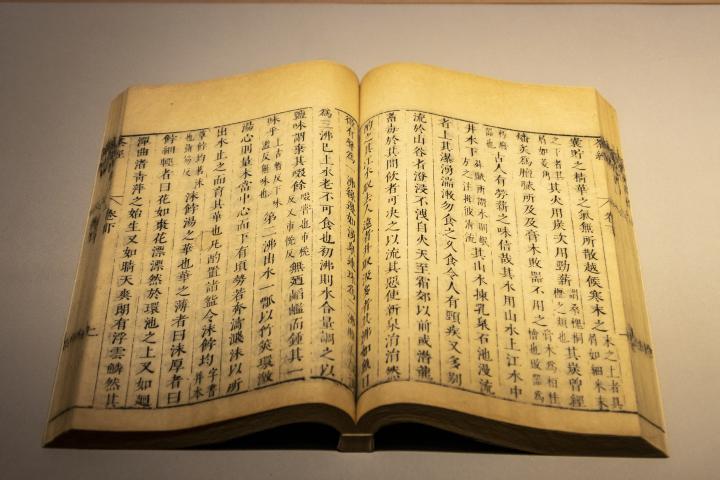 茶經
卷下
囊貯之精華之氣無所散越候寒末之 末之上者其屑如細米末
之下者其屑如菱角 其火用炭次用勁薪 謂桑槐桐櫪之類也 其炭曾經
燔炙為膻膩所及及膏木敗器不用之 膏木為柏桂檜也敗器為
朽廢器也 古人有勞薪之味信哉其水用山水上江水中
井水下 荈賦所謂水則岷方之注揖彼清流 其山水揀乳泉石池漫流
者上其瀑湧湍漱勿食之久食令人有頸疾又多別
流於山谷者澄浸不洩自火天至霜郊以前或潛龍
蓄毒於其間飲者可決之以流其惡使新泉涓涓然
酌之其江水取去人遠者井取汲多者其沸如魚目
微有聲為一沸緣邊如湧泉連珠為二沸
為三沸已上水老不可食也初沸則水合量調之以
鹽味謂棄其啜餘 啜嘗也市稅反又市悅反 無迺䶢䶟而鍾其一
味乎 上古暫反下吐濫反無味也 第二沸出水一瓢以竹筴環激
湯心則量末當中心而下有頃勢若奔濤濺沫以所
出水止之而育其華也凡酌置諸盌令沫餑均 字書并本
草餑均茗沫也蒲笏反 沫餑湯之華也華之薄者曰沫厚者曰
餑細輕者曰花如棗花漂漂然於環池之上又如迴
潭曲渚青萍之始生又如晴天爽朗有浮雲鱗然其
茶經
卷下